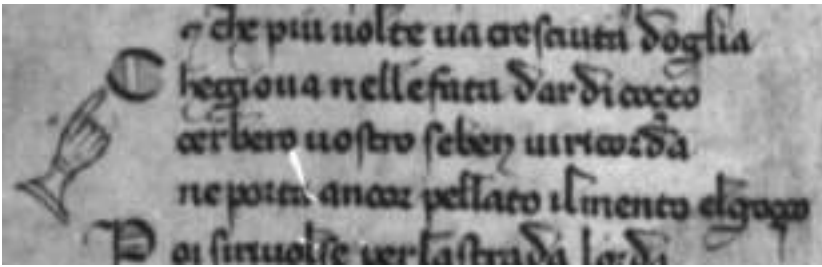 e che piu uolte ua cresciuta doglia
Che gioua nelle fata dar di coçço
cerbero uostro se ben ui ricorda
ne porta ancor pellato il mento el goço
Poi si riuolse per la strada lorda